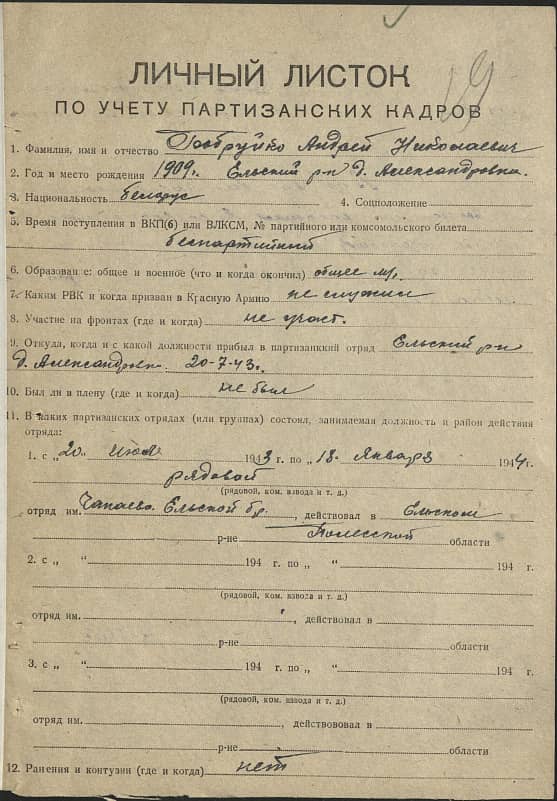 19
ЛИЧНЫЙ ЛИСТОК
ПО УЧЕТУ ПАРТИЗАНСКИХ КАДРОВ
1. Фамилия, имя и отчество Бобруйко Андрей Николаевич
2. Год и место рождения 1909г. Ельский р-н д. Александровка.
3. Национальность белорус 4. Соцположение
5. Время поступления в ВКП(б) или ВЛКСМ, № партийного или комсомольского билета
беспартийный
6. Образование: общее и военное (что и когда окончил) общее
7. Каким РВК и когда призван в Красную Армию не служил
8. Участие на фронтах (где и когда) не участ.
9. Откуда, когда и с какой должности прибыл в партизанккий отряд Ельский р-н
д. Александровка 20-7-43г.
10. Был ли в плену (где и когда) не был
11. В каких партизанских отрядах (или группах) состоял, занимаемая должность и район действия
отряда:
1. с „ 20 “ июля 1943 г. по „ 18 “ Января 1944 г.
рядовой
(рядовой, ком. взвода и т. д.)
отряд им. Чапаева Ельской бр., действовал в Ельском
р-не Полесской области
2. с „ “ 194 г. по „ “ 194 г.
(рядовой, ком. взвода и т. д.)
отряд им. , действовал в
р-не области
3. с „ “ 194 г. по „ “ 194 г.
(рядовой, ком. взвода и т. д.)
отряд им. , действововал в
р-не области
12. Ранения и контузии (где и когда) нет